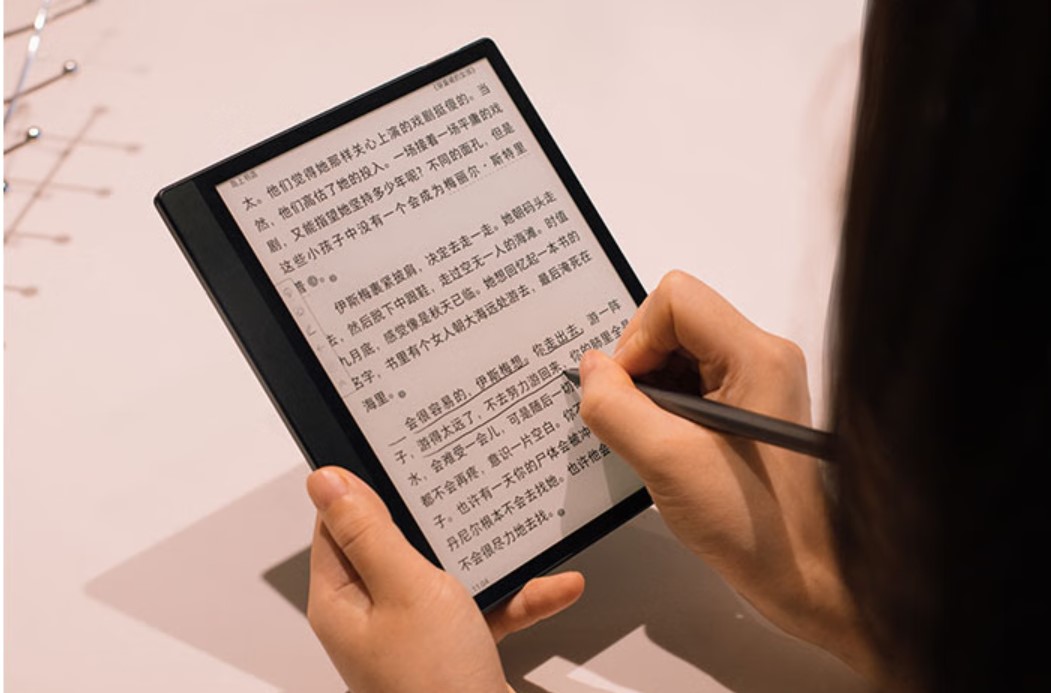 太。他们觉得她那样关心上演的戏剧挺傻的。当
然，他们高估了她的投入。一场接着一场平庸的戏
剧，又能指望她坚持多少年呢？不同的面孔，但是
这些小孩子中没有一个会成为梅丽尔·斯特里
普。
伊斯梅裹紧披肩，决定去走一走。她朝码头走
去，然后脱下中跟鞋，走过空无一人的海滩。时值
九月底，感觉像是秋天已临。她想回忆起一本书的
名字，书里有个女人朝大海远处游去，最后淹死在
海里。
会很容易的，伊斯梅想。你走出去，游一阵
子，游得太远了，不去努力游回来，你的肺里全是
水，会难受一会儿，可是随后一切
都不会再疼，意识一片空白。你不
子。也许有一天你的尸体会被冲
丹尼尔根本不会去找她。也许他会
不会很尽力地去找。
11:04